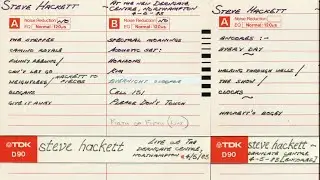 STEVE HACKETT
- AT THE NEW DERNGATE CENTRE, NORTHAMPTON 4-5-83
A Noise Reduction: NO
EQ: Normal: 120µs
B Noise Reduction: NO
EQ: Normal: 120µs
THE STEPPES
CAMINO ROYALE
FUNNY FEELING
CAN'T LET GO
HACKETT TO PIECES
SLOGANS
GIVE IT AWAY
SPECTRAL MORNINGS
ACOUSTIC SET:
HORIZONS
KIM
OVERNIGHT SLEEPER
CELL 151
PLEASE DON'T TOUCH
FIRTH OF FIFTH (LIVE)
TDK
D90
steve hackett
LIVE AT THE DERNGATE CENTRE, NORTHAMPTON
4/5/83
STEVE HACKETT
A Noise Reduction
EQ: Normal: 120µs
ENCORES:-
EVERY DAY
WALKING THROUGH WALLS /
THE SHOW /
CLOCKS
HACKETT'S BOOGY
TDK
D90
steve hackett
- DERNGATE CENTRE,
4-5-83 [ENCORES]